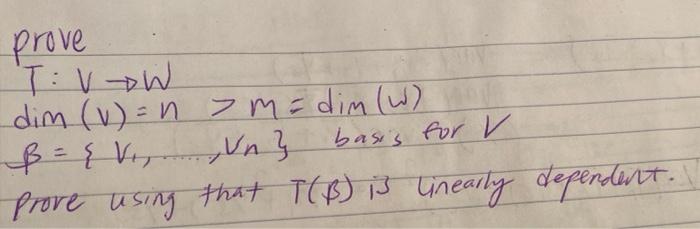 prove
T: V → W
dim (V) = n > m = dim (W)
β = { V₁, ......, Vn } basis for V
Prove using that T(β) is linearly dependent.